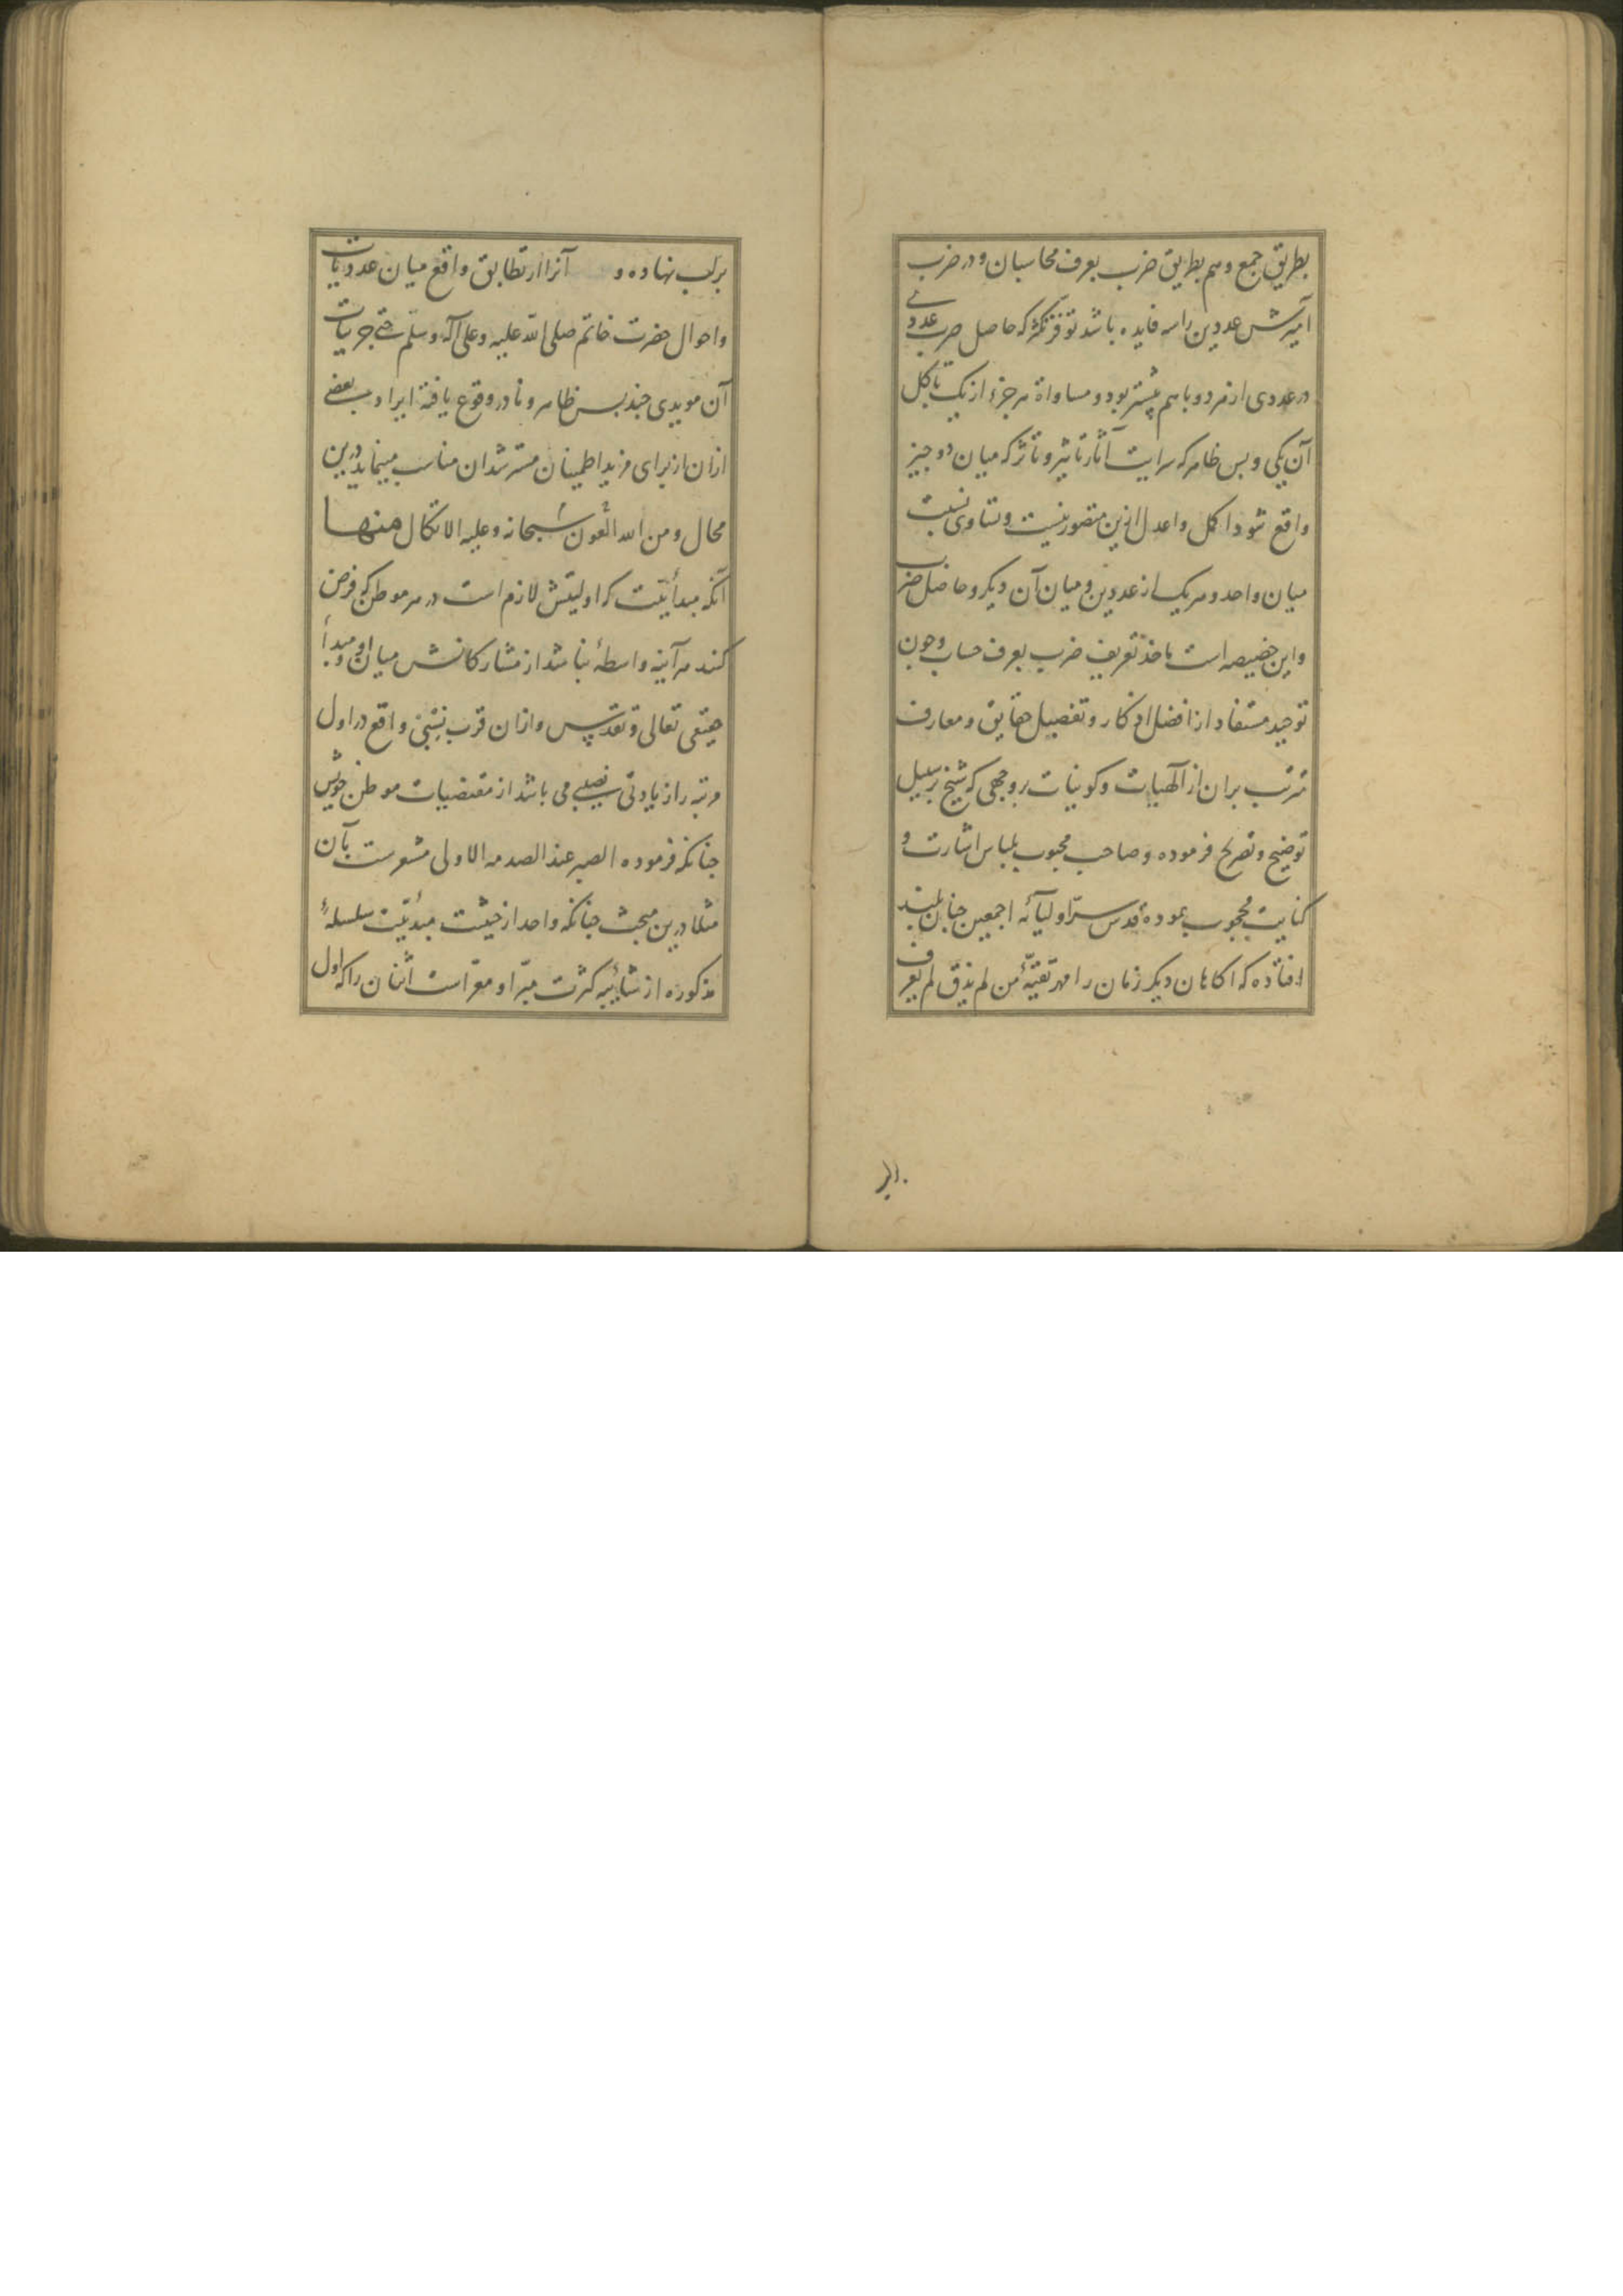 بطریق جمع و هم بطریق ضرب بعرف محاسبان و در ضرب
آمیزش عددین را سه فایده باشد توفر تکثر که حاصل ضرب عددی
در عددی از هر دو با هم بیشتر بود و مساواة هر جزء از یک تا کل
آن یکی و بس ظاهر که سرایت آثار تاثیر و تاثر که میان دو چیز
واقع شود اکمل و اعدل ازین متصور نیست و تساوی نسبت
میان واحد و هر یک از عددین و میان آن دیگر و حاصل ضرب
و این خصیصه است ماخذ تعریف ضرب بعرف حساب و چون
توحید مستفاد از افضل اذکار و تفصیل حقایق و معارف
مترتب بران از آلهیات و کونیات بر وجهی که شیخ بر سبیل
توضیح و تصریح فرموده و صاحب محبوب بلباس اشارت و
کنایت محجوب نموده قدس سرّ اولیائه اجمعین چنان بلند
افتاده که آکاهان دیگر زمان را مهر تقیّهٔ من لم یذق لم یعرف
بر لب نهاده و آنرا از تطابق واقع میان عددیات
و احوال حضرت خاتم صلی الله علیه و علی آله و سلّم حتی جزییات
آن مویدی چند بس ظاهر و نادر وقوع یافته ایراد بعضی
ازان از برای مزید اطمینان مسترشدان مناسب مینماید درین
محال و من الله العون سبحانه و علیه الاتکال منها
آنکه مبدأیّت که اولیتش لازم است در هر موطن که فرض
کنند هر آینه واسطهٔ نباشد از مشارکانش میان او و مبدأ
حقیقی تعالی و تقدّس و ازان قرب نسبی واقع در اول
مرتبه را زیادتی نصیبی می باشد از مقتضیات موطن خویش
چنانکه فرموده الصبر عند الصدمه الاولی مشعرست بآن
مثلا درین مبحث چنانکه واحد از حیثیت مبدئیّت سلسلهٔ
مذکوره از شایبهٔ کثرت مبّرا و معرّاست اثنان را که اول